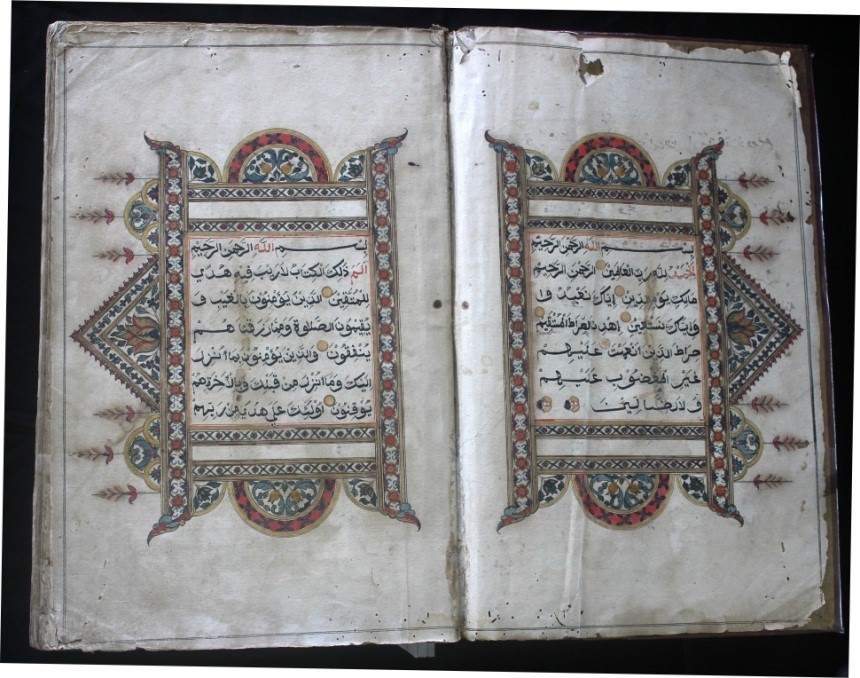 بسم الله الرحمن الرحيم
الحمد لله رب العالمين الرحمن الرحيم
مالك يوم الدين اياك نعبد و
اياك نستعين اهدنا الصراط المستقيم
صراط الذين انعمت عليهم
غير المغضوب عليهم
و لا الضالين
بسم الله الرحمن الرحيم
الم ذلك الكتاب لا ريب فيه هدي
للمتقين الذين يؤمنون بالغيب و
يقيمون الصلوة ومما رزقنهم
ينفقون والذين يؤمنون بما انزل
اليك وما انزل من قبلك وبالاخرة هم
يوقنون اولئك علي هدي من ربهم